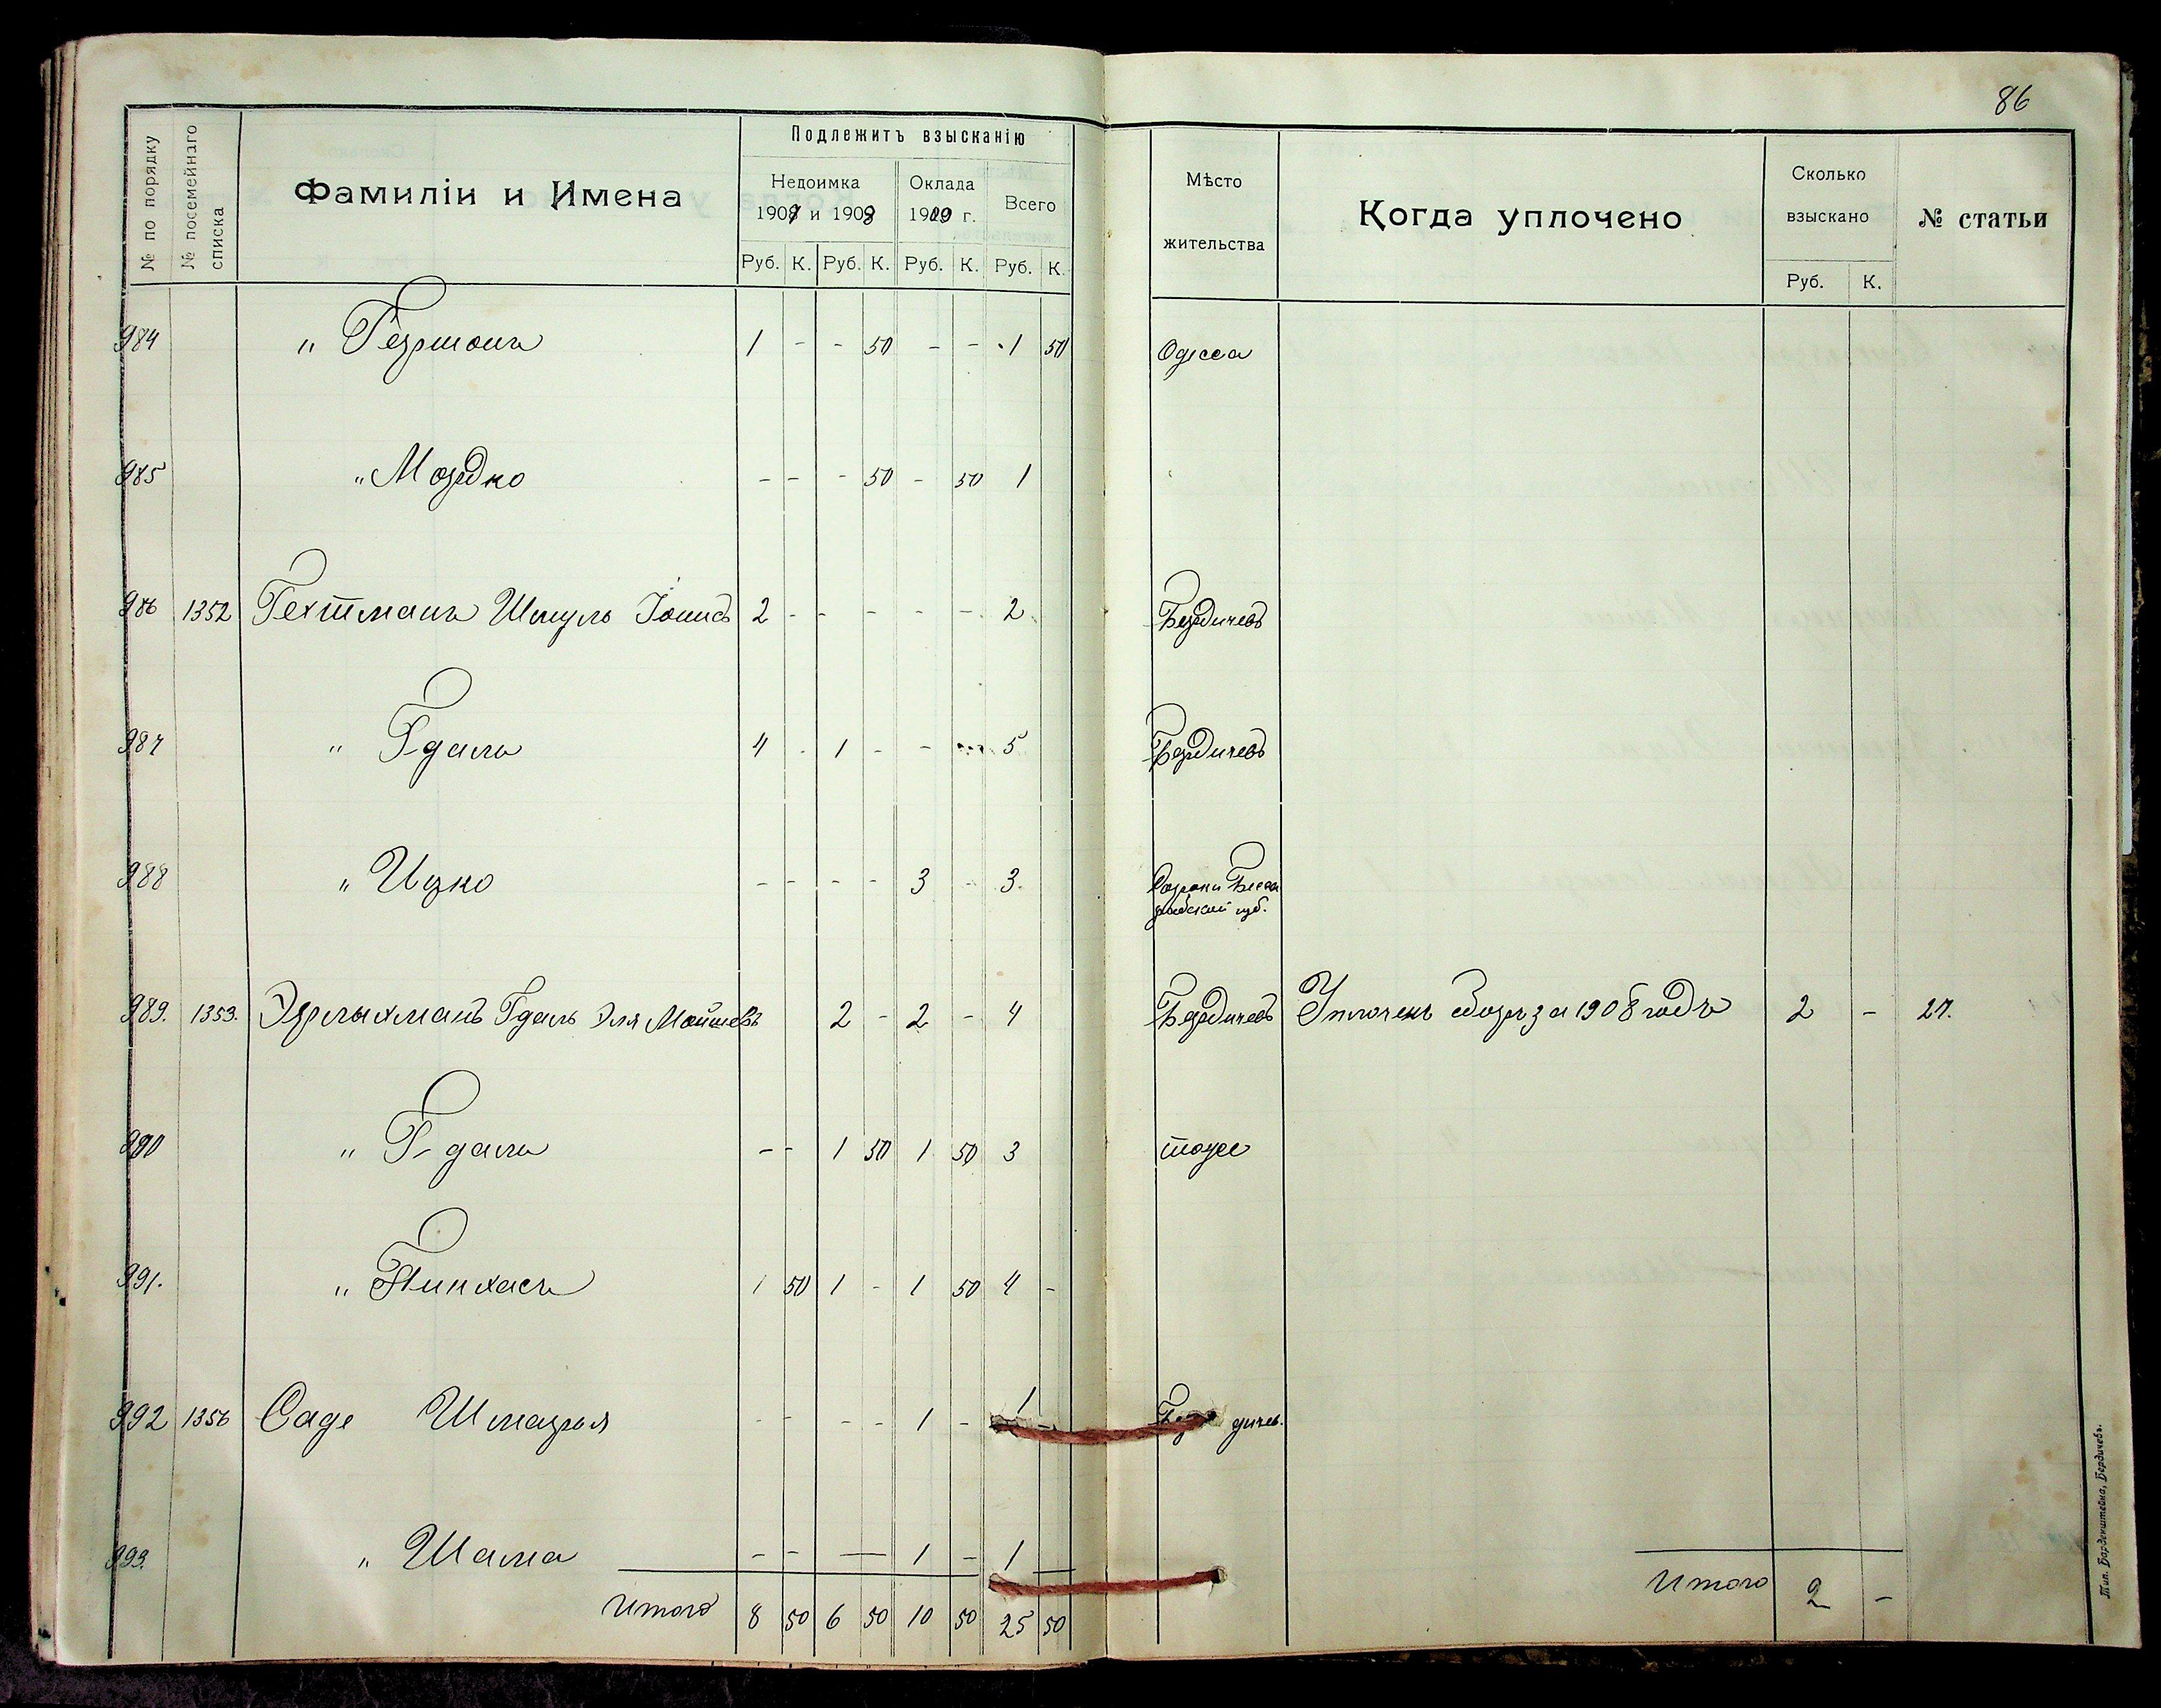 86
№ по порядку № посемейнаго списка Фамиліи и Имена Подлежитъ взысканію Мѣсто жительства Когда уплочено Сколько взыскано № статьи
Недоимка 1907 и 1908 Оклада 1909 г. Всего
Руб. К. Руб. К. Руб. К. Руб. К. Руб. К.
984 " Гершонъ 1 - - 50 - - 1 50 Одесса
985 " Мордко - - - 50 - 50 1
986 1352 Гехтманъ Шмуль Іонисъ 2 - - - - - 2 Бердичевъ
987 " Гдаль 4 - 1 - - - 5 Бердичевъ
988 " Ицко - - - - 3 - 3 Сороки Бесса
рабской губ.
989. 1353. Эрлихманъ Гдаль Эля Мойшевъ 2 - 2 - 4 Бердичевъ Уплоченъ сборъ за 1908 годъ 2 - 27.
990 " Гдаль - - 1 50 1 50 3 тоже
991. " Пинхасъ 1 50 1 - 1 50 4 -
992 1356 Саде Шмарья - - - - 1 - 1 - Бердичев.
993. " Шама - - — 1 - 1 —
Итого 8 50 6 50 10 50 25 50 Итого 2 -
Тип. Барденштейна, Бердичевъ.